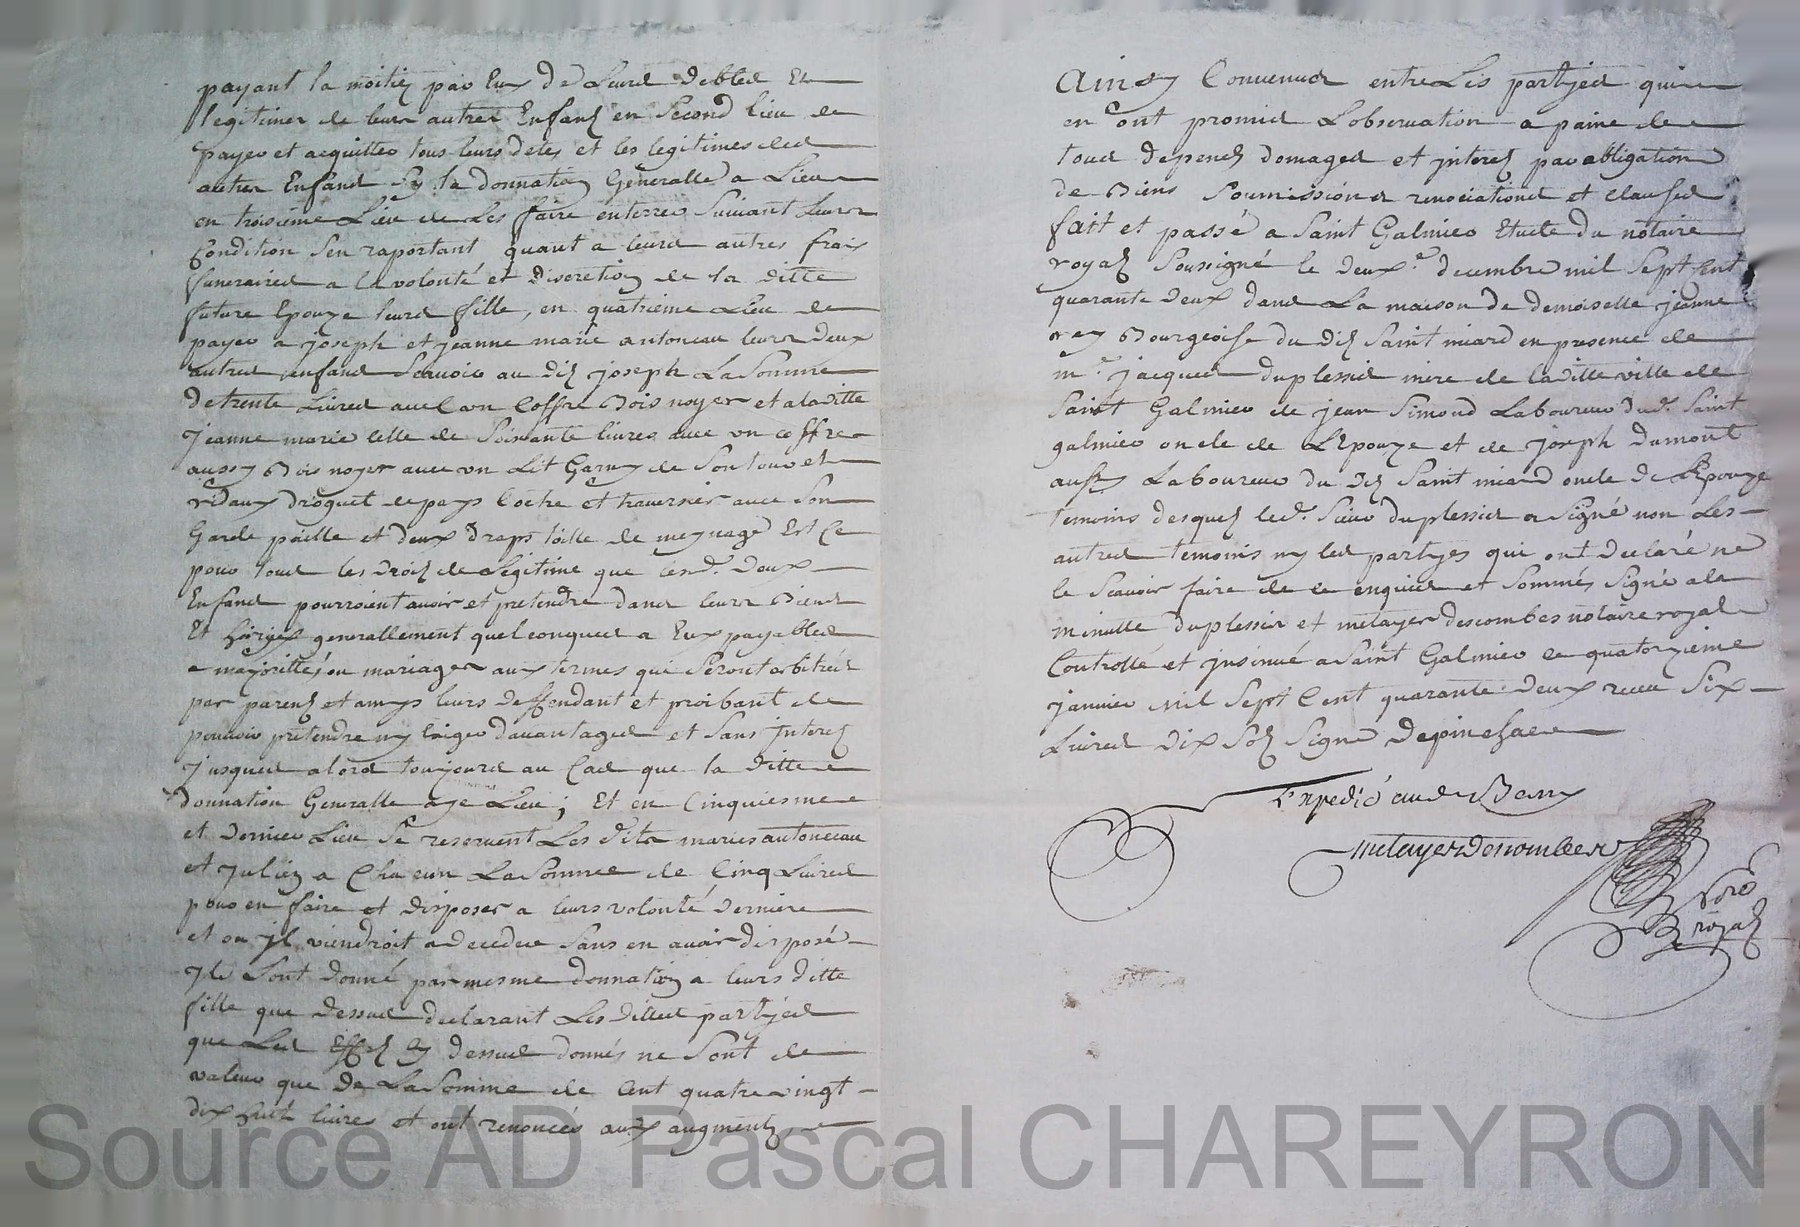 payant la moitiez par Eux De Leurs debtes Et
legitimes de leurs autres Enfans en Second lieu de
payer et acquitter tous leurs detes et les legitimes des
autres Enfans Sy la donnation Generalle a Lieu
en troisieme Lieu de Les faire enterrer Suivant Leurs
Condition S'en raportant quant a leurs autres frais
funeraires a la volonté et discretion de la ditte
future Epouze leurs fille, en quatrieme Lieu de
payer a joseph et jeanne marie antoneau leurs deux
autres enfans Scavoir au dit joseph La Somme
de trente Livres avec un Coffre Bois noyer et a la ditte
Jeanne marie celle de Soixante livres avec un coffre
aussy Bois noyer avec un Lit Garny de Son tour et
ridaux droguet de pays Coetre et traversier avec Son
Garde paille et deux draps toille de meynage Est Ce
pour tous les droits de Légitime que lesd. deux
Enfans pourroient avoir et pretendre dans leurs Biens
Et generallement quelconques a Eux payables
a majorittés ou mariages aux termes qui Seront arbitrés
par parens et amys leurs deffendant et proibant de
pouvoir pretendre ny Exiger davantages et Sans Interes
Jusques alors toujours au Cas que la ditte
donnation Generalle aye Lieu; Et en Cinquiesme
et dernier Lieu Se reservent Les dits maries antoneau
et Julien a Chacun La Somme de Cinq Livres
pour en faire et disposer a leurs volonté derniere
et ou Il viendroit a deceder Sans en avoir disposé
Ils Sont donné par mesme donnation a leurs ditte
fille que dessus declarant Les dittes partyes
que Les Effets Cy dessus donnés ne Sont de
valeur que de La Somme de Cent quatre vingt
dix huit livres et ont renoncés aux augments
Ainsy Convenus entre Les partyes qui
en ont promis L'observation a paine de
tous depens domages et interes par obligation
de Biens Soumissions renociations et clauses
fait et passé a Saint Galmier Etude du notaire
royal Soussigné le deux.e decembre mil Sept Cent
quarante deux dans La maison de demoiselle jeanne
rey Bourgeoise du dit Saint miard en presence de
m.r jacques duplessis mere de la ditte ville de
Saint Galmier de jean Simond Laboureur dud. Saint
galmier oncle de L'Epouze et de joseph dumont
aussy Laboureur du dit Saint miard oncle de L'Epouze
temoins desquels led. Sieur duplessis a Signé non Les
autres temoins ny les partyes qui ont declaré ne
le Scavoir faire de ce enquis et Sommés Signé a la
minutte duplessis et métayer descombes notaire royal
Controllé et insinué a Saint Galmier le quatorzieme
janvier Mil Sept Cent quarante deux receu Six
Livres dix Sols Signé depinchac
Expedié
metayer descombes
No.re
royal
Source AD Pascal CHAREYRON